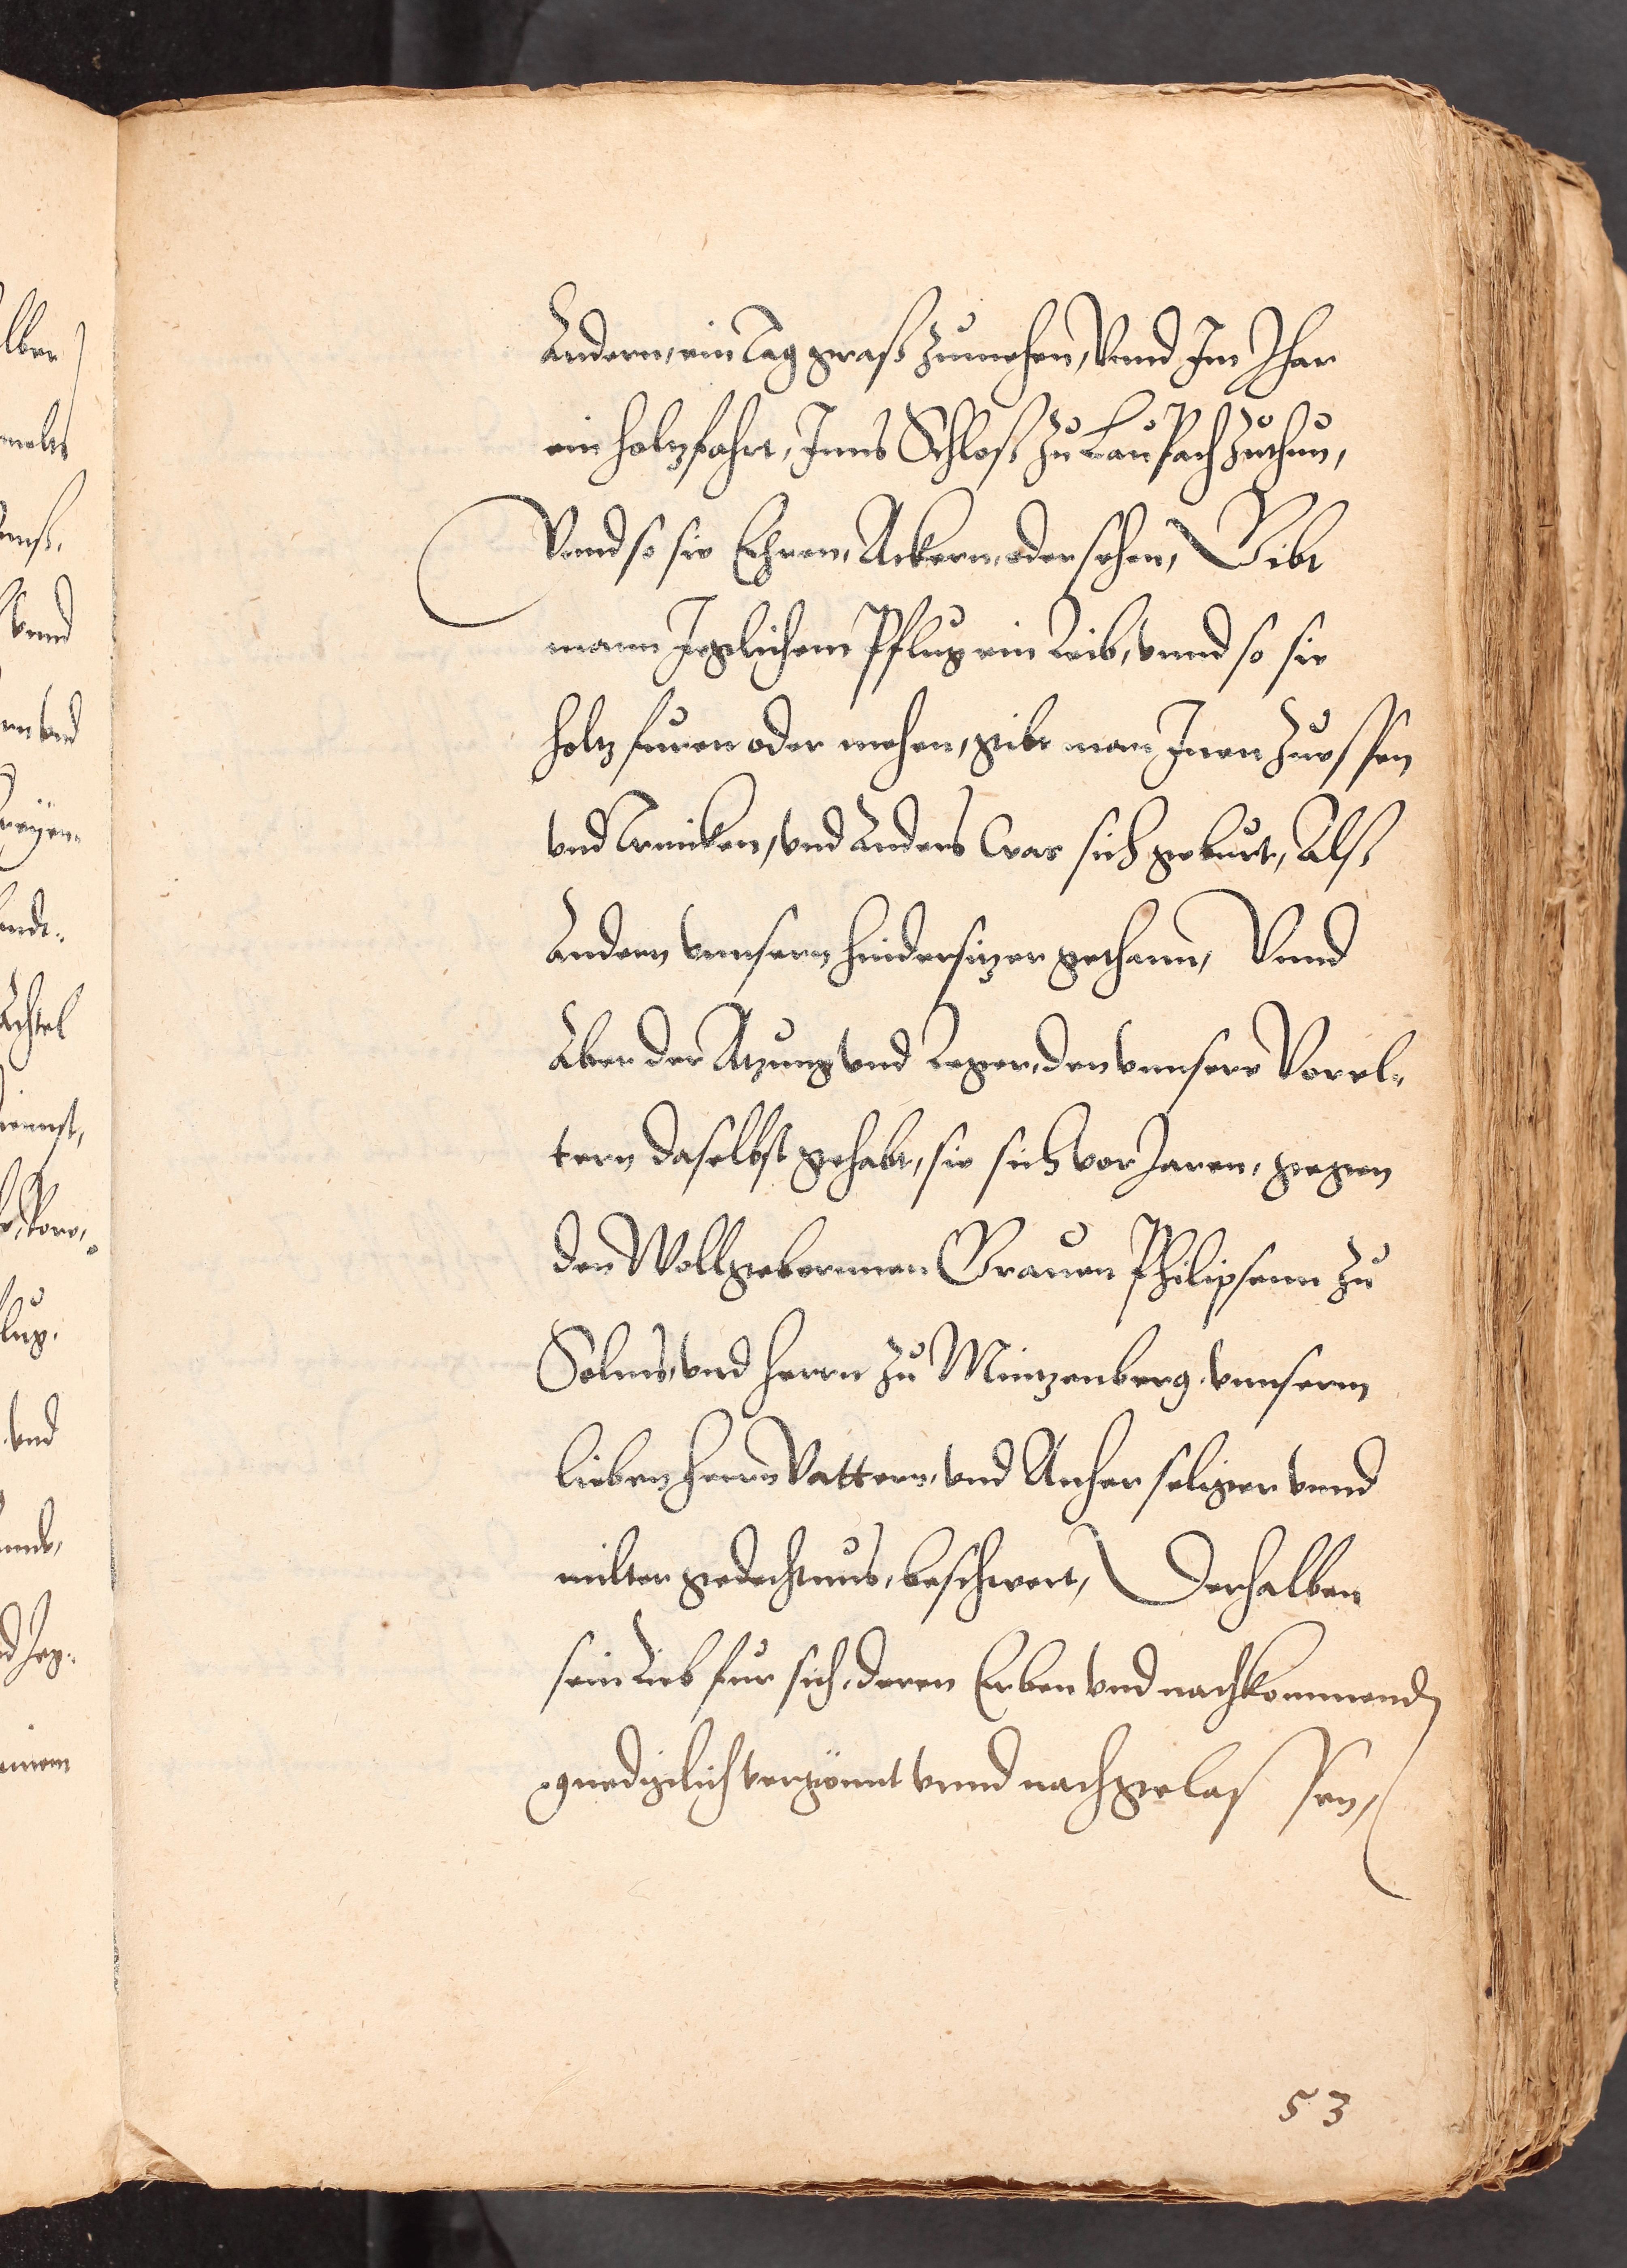 Andern, ein Tag graß zumehen, Vnnd Im Jhar
ein holtzfahrt, Inns Schloß zu Laupach zuthun,
Vnnd so sie Ehren, Ackern, oder sehen, Gibt
mann Jeglichem Pflug ein Leib, vnnd so sie
holtz furen oder mehen, gibt man Inen zuessen
vnd Trincken, vnd Anders Was sich geburt, Alß
Andern vnnsern hindersitzer gethann, Vnnd
Aber der Atzung vnd Leger, den vnnsere Vorel-
tern daselbst gehabt, sie sich vor Jaren, gegen
den Wollgebornnen Grauen Philipsenn zu
Solms, vnd herrn zu Mintzenberg, vnnserm
lieben herrn Vattern, vnd Anher seliger vnnd
milter gedechtnus, beschwert, Derhalben
sein Lieb fur sich, deren Erben vnd nachkommend
gnediglich vergönnt vnnd nachgelassen,
53
lber
vnnd
vnd
Achtel
vnd
einem